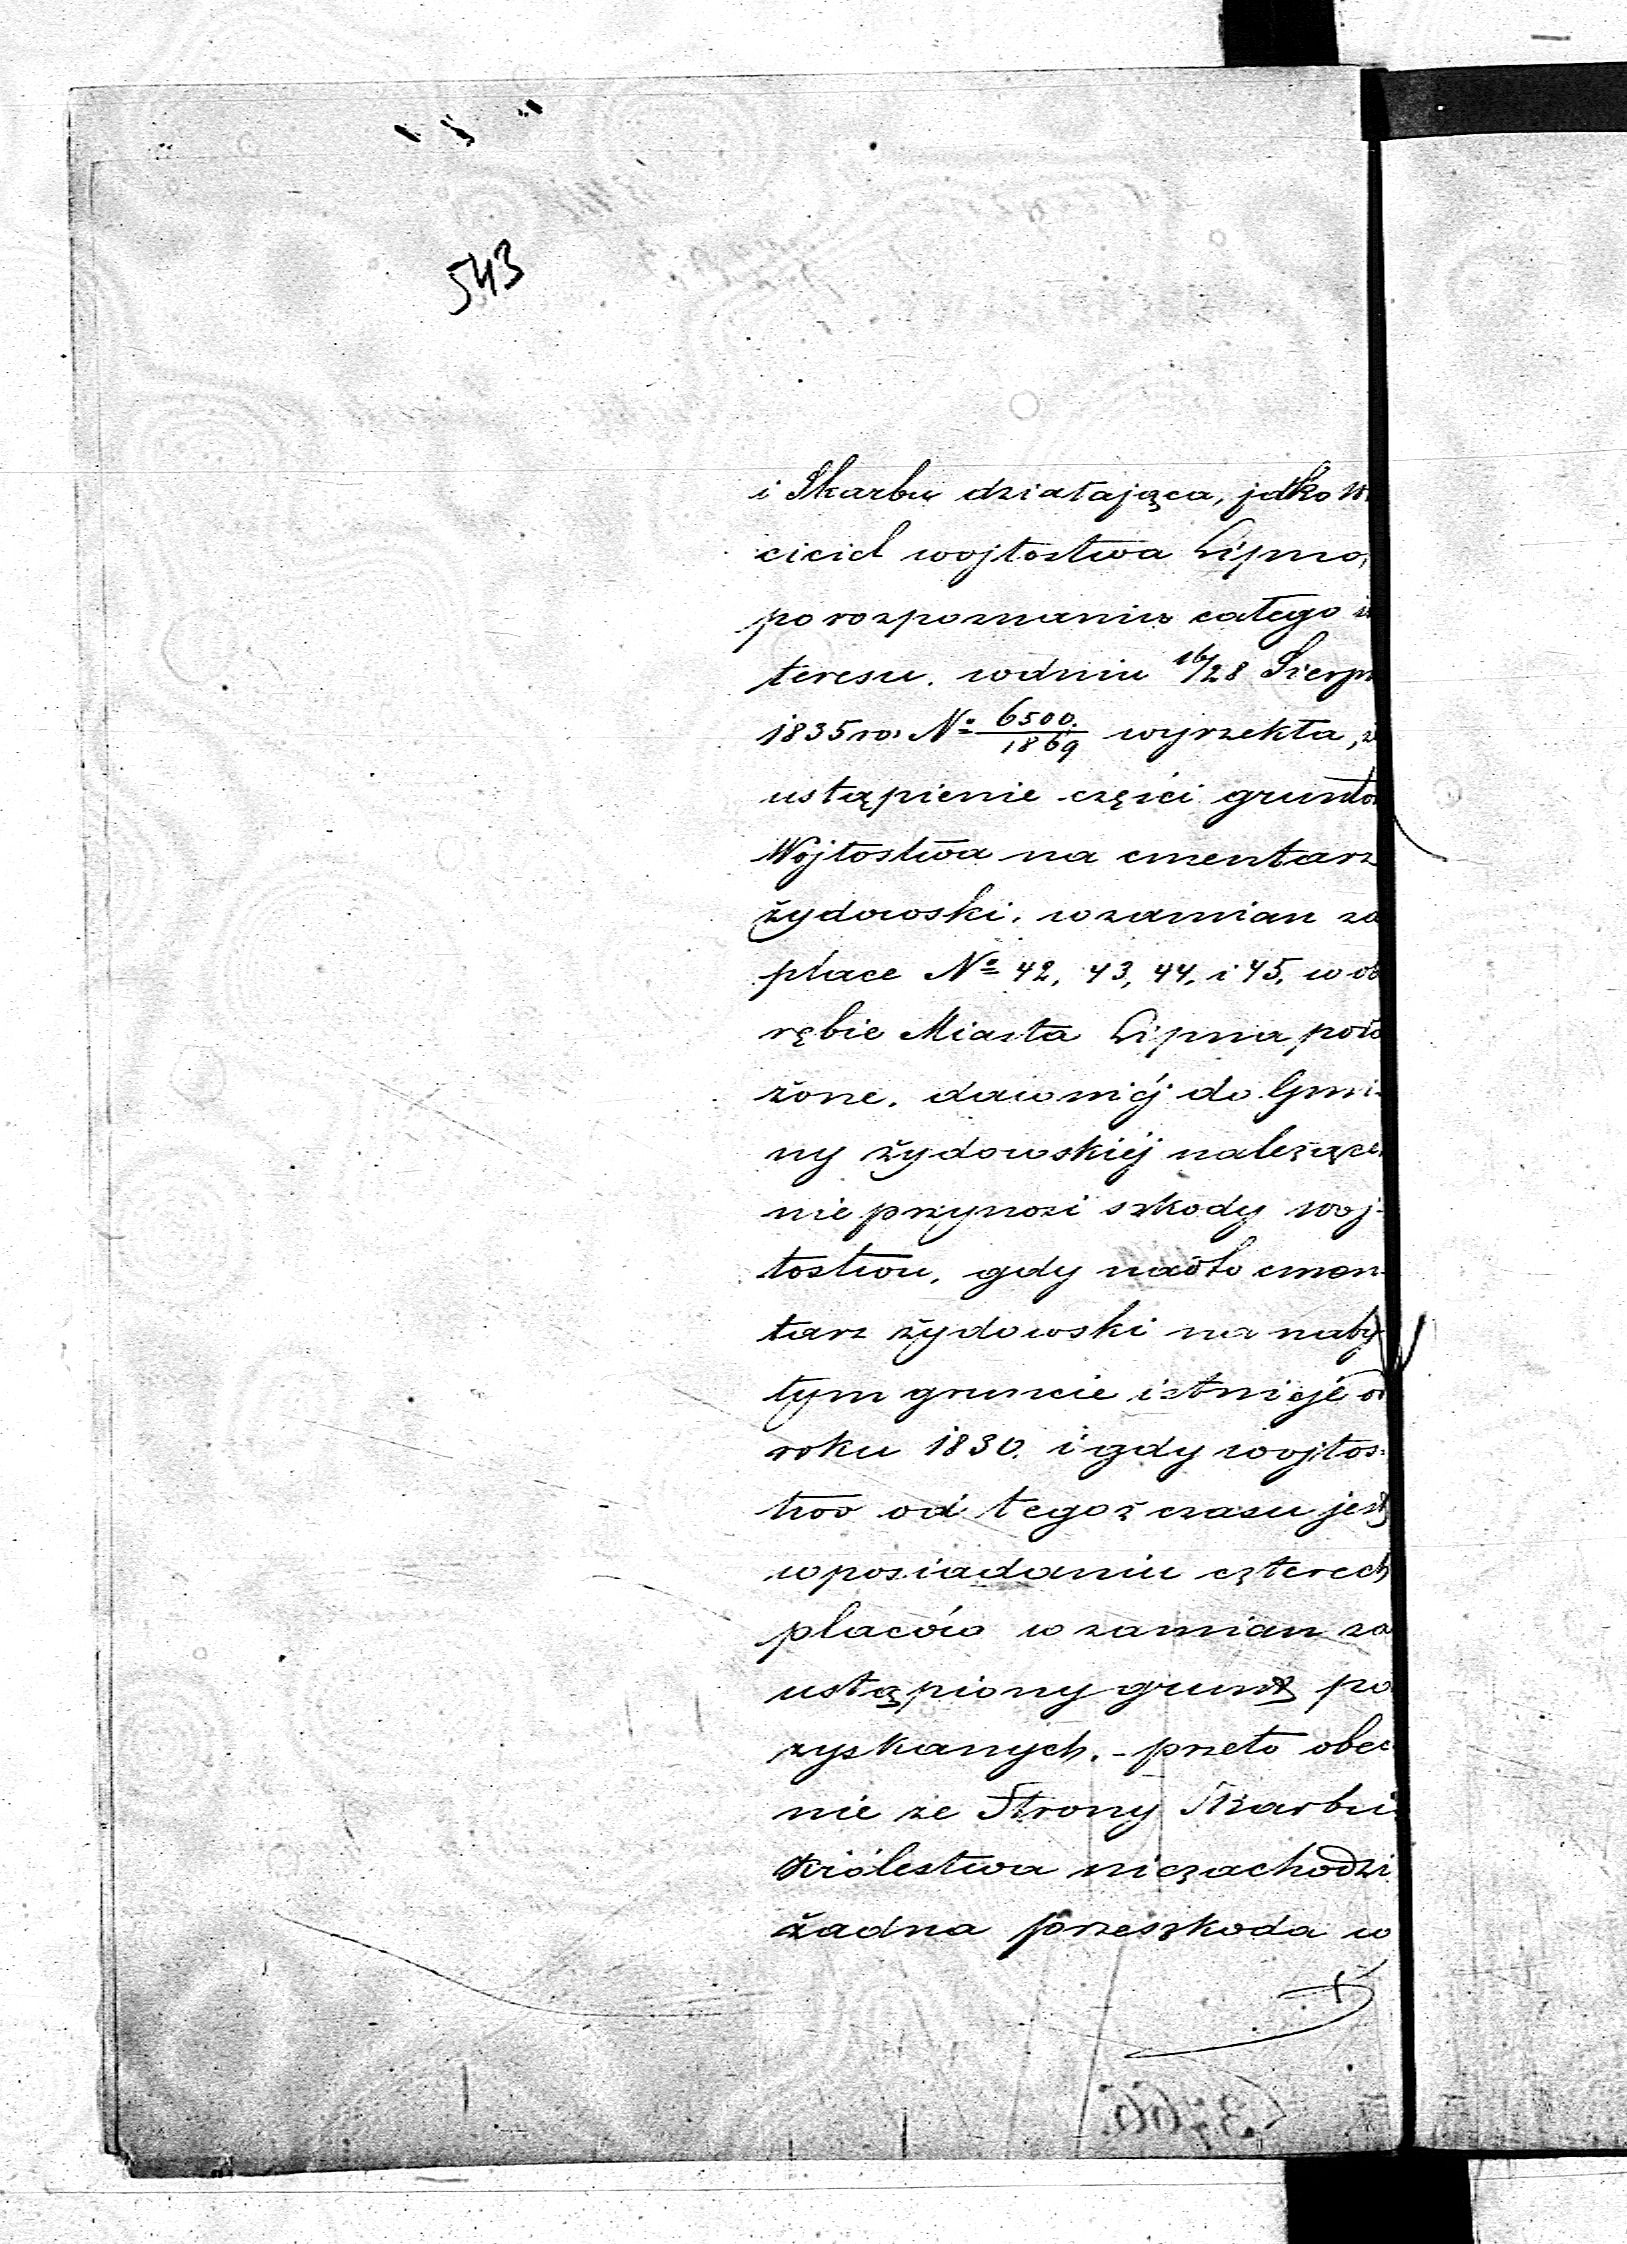 543
i Skarbu działająca, jako w
ciciel wojtostwa Lipno,
po rozpoznaniu całego in
teresu. wdniu 16/28 Sierpn
1835 ro. No 6500./1869 wyrzekła, że
ustąpienie części grunto
Wójtostwa na cmentarz
żydowski, wzamian za
place No 42, 43, 44, i 45, w ob
rębie Miasta Lipna poło
żone, dawniéj do Gmi-
ny żydowskiéj należące
nie przynosi szkody woj-
tostwu, gdy nadto cmen-
tarz żydowski na naby
tym gruncie istnieje od
roku 1830. i gdy wojtos-
two od tegoż czasu jest
w posiadaniu czterech
placów w zamian za
ustąpiony grunt po
zyskanych. - przeto obec
nie ze Strony Skarbu
Królestwa niezachodzi
żadna przeszkoda w